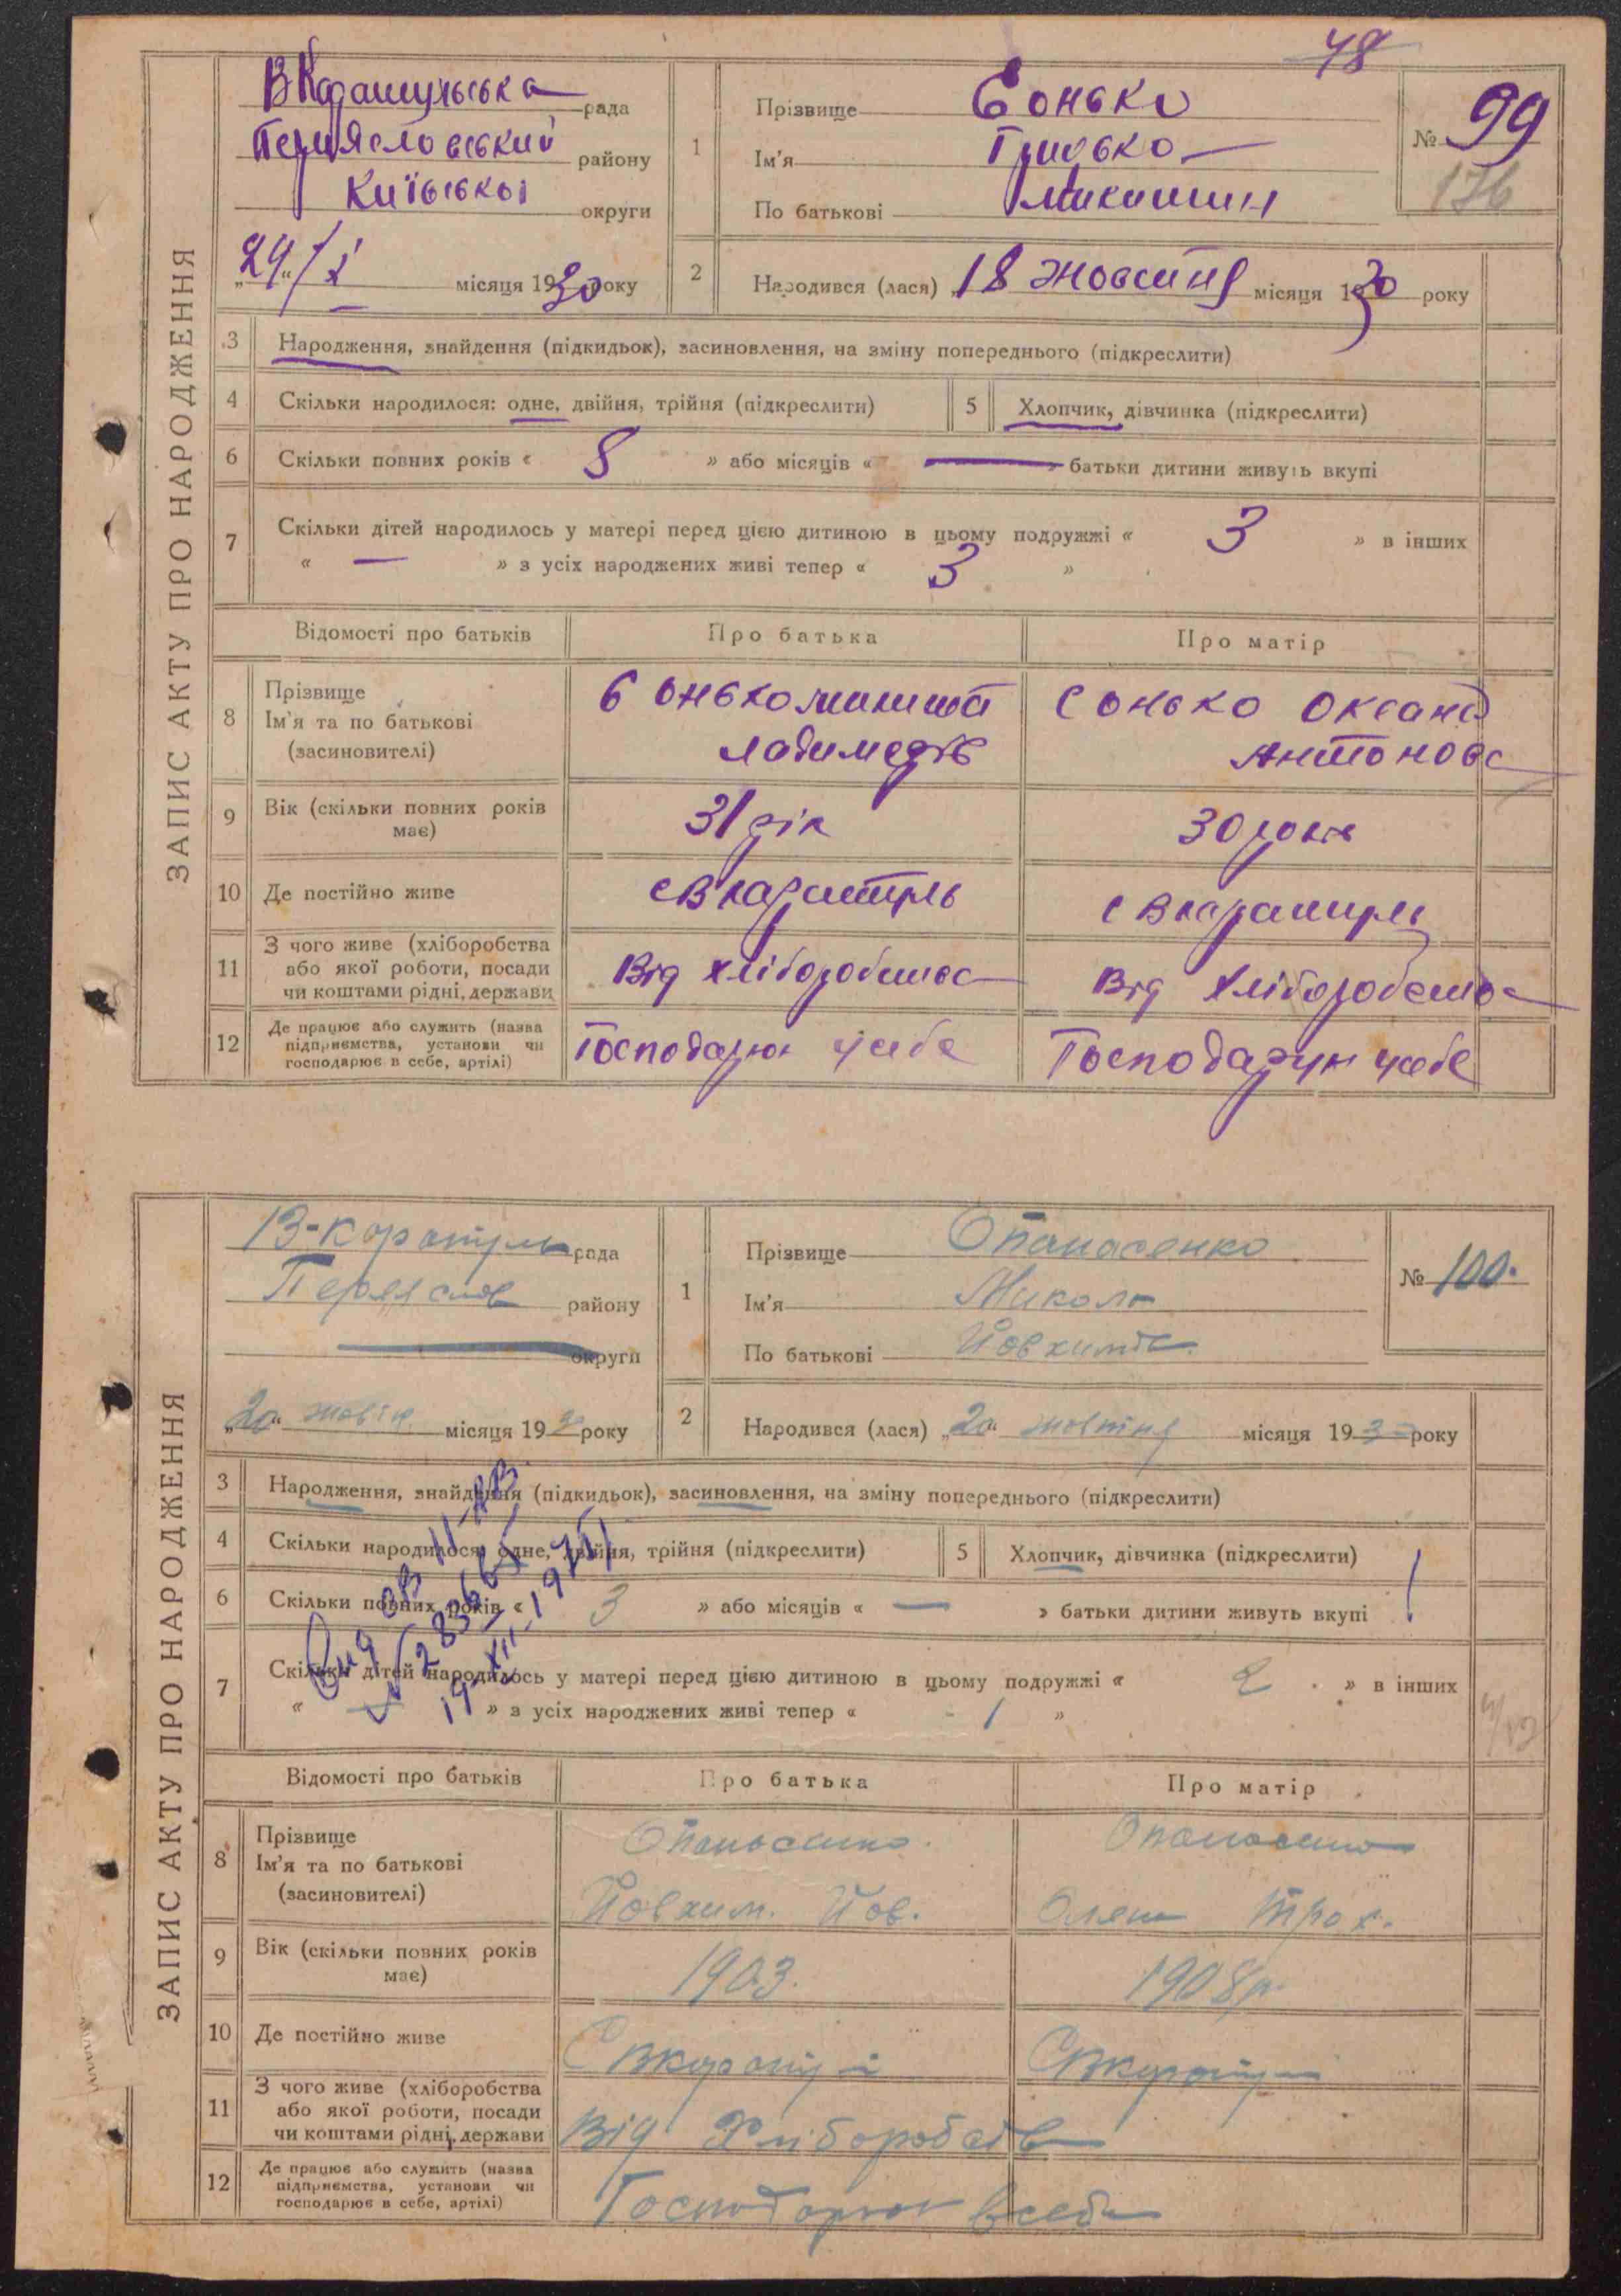 48
ЗАПИС АКТУ ПРО НАРОДЖЕННЯ
рада
району
Київської округи
29/X місяця 1930 року
1
Прізвище Сонько
Ім'я Грицько
По батькові Микитин
№ 99
176
2
Народився (лася) „18 жовтня місяця 1930 року
3 Народження, знайдення (підкидьок), засиновлення, на зміну попереднього (підкреслити)
4 Скільки народилося: одне, двійня, трійня (підкреслити)
5 Хлопчик, дівчинка (підкреслити)
6 Скільки повних років « 8 » або місяців « — » батьки дитини живуть вкупі
7 Скільки дітей народилось у матері перед цією дитиною в цьому подружжі « 3 » в інших
« — » з усіх народжених живі тепер « 3 »
Відомості про батьків
Про батька
Про матір
8
Прізвище
Ім'я та по батькові
(засиновителі)
Сонько микита
Сонько Оксана
Антонова
9
Вік (скільки повних років
має)
31 рік
30 років
10 Де постійно живе
11
З чого живе (хліборобства
або якої роботи, посади
чи коштами рідні, держави
Від хліборобства
Від хліборобства
12
Де працює або служить (назва
підприємства, установи чи
господарює в себе, артілі)
Господарює у себе
Господарує у себе
ЗАПИС АКТУ ПРО НАРОДЖЕННЯ
В-Каратуль рада
Переяслов району
— округи
„20“ жовтн. місяця 1930 року
1
Прізвище Опанасенко
Ім'я Микола
По батькові Йовхимів
№ 100.
2
Народився (лася) „20“ жовтня місяця 1930 року
3 Народження, знайдення (підкидьок), засиновлення, на зміну попереднього (підкреслити)
4 Скільки народилося: одне, двійня, трійня (підкреслити)
5 Хлопчик, дівчинка (підкреслити)
6 Скільки повних років « 3 » або місяців « — » батьки дитини живуть вкупі
7 Скільки дітей народилось у матері перед цією дитиною в цьому подружжі « 2 » в інших
« — » з усіх народжених живі тепер « 1 »
Відомості про батьків
Про батька
Про матір
8
Прізвище
Ім'я та по батькові
(засиновителі)
Йовхим. Йов.
Трох.
9
Вік (скільки повних років
має)
1903.
1908р.
10 Де постійно живе
11
З чого живе (хліборобства
або якої роботи, посади
чи коштами рідні, держави
Від
12
Де працює або служить (назва
підприємства, установи чи
господарює в себе, артілі)
Господарює в себе